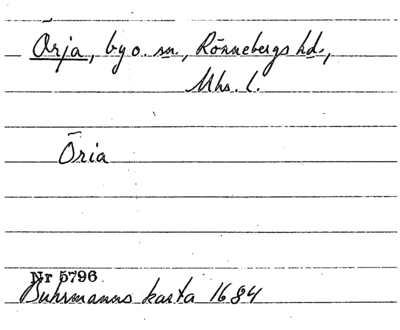 Örja, by o. sn., Rönnebergs hd.,
Mhs. l.
Öria
Nr 5796
Buhrmanns karta 1684